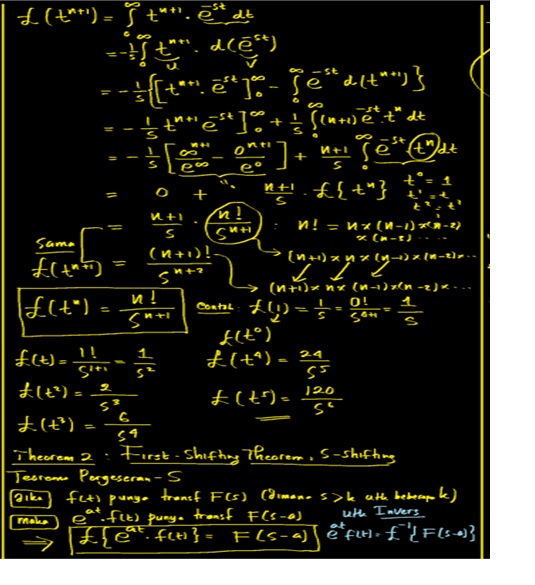 £(tⁿ⁺¹) = ∫₀^∞ tⁿ⁺¹ · e^-st dt
= -1/s ∫₀^∞ tⁿ⁺¹ · d(e^-st)
u v
= -1/s {[tⁿ⁺¹ · e^-st]₀^∞ - ∫₀^∞ e^-st d(tⁿ⁺¹)}
= -1/s tⁿ⁺¹ e^-st]₀^∞ + 1/s ∫₀^∞ (n+1) e^-st · tⁿ dt
= -1/s [∞ⁿ⁺¹/e^∞ - 0ⁿ⁺¹/e⁰] + n+1/s ∫₀^∞ e^-st tⁿ dt
= 0 + " n+1/s · £{tⁿ} t⁰ = 1
t¹ = t
t² = t²
= n+1/s · n!/sⁿ⁺¹ : n! = n x (n-1) x (n-2)
x (n-3) ....
Sama
(n+1) x n x (n-1) x (n-2) x ..
£(tⁿ⁺¹) = (n+1)!/sⁿ⁺²
(n+1) x n x (n-1) x (n-2) x ...
£(tⁿ) = n!/sⁿ⁺¹ Contoh : £(1) = 1/s = 0!/s⁰⁺¹ = 1/s
£(t⁰)
£(t) = 1!/s¹⁺¹ = 1/s² £(t⁴) = 24/s⁵
£(t²) = 2/s³ £(t⁵) = 120/s⁶
£(t³) = 6/s⁴
Theorem 2 : First-Shifting Theorem, S-shifting
Teorema Pergeseran-S
Jika f(t) punya transf F(s) (dimana s>k utk beberapa k)
maka e^at · f(t) punya transf F(s-a) utk Invers
⇒ £{e^at · f(t)} = F(s-a) e^at f(t) = £⁻¹{F(s-a)}